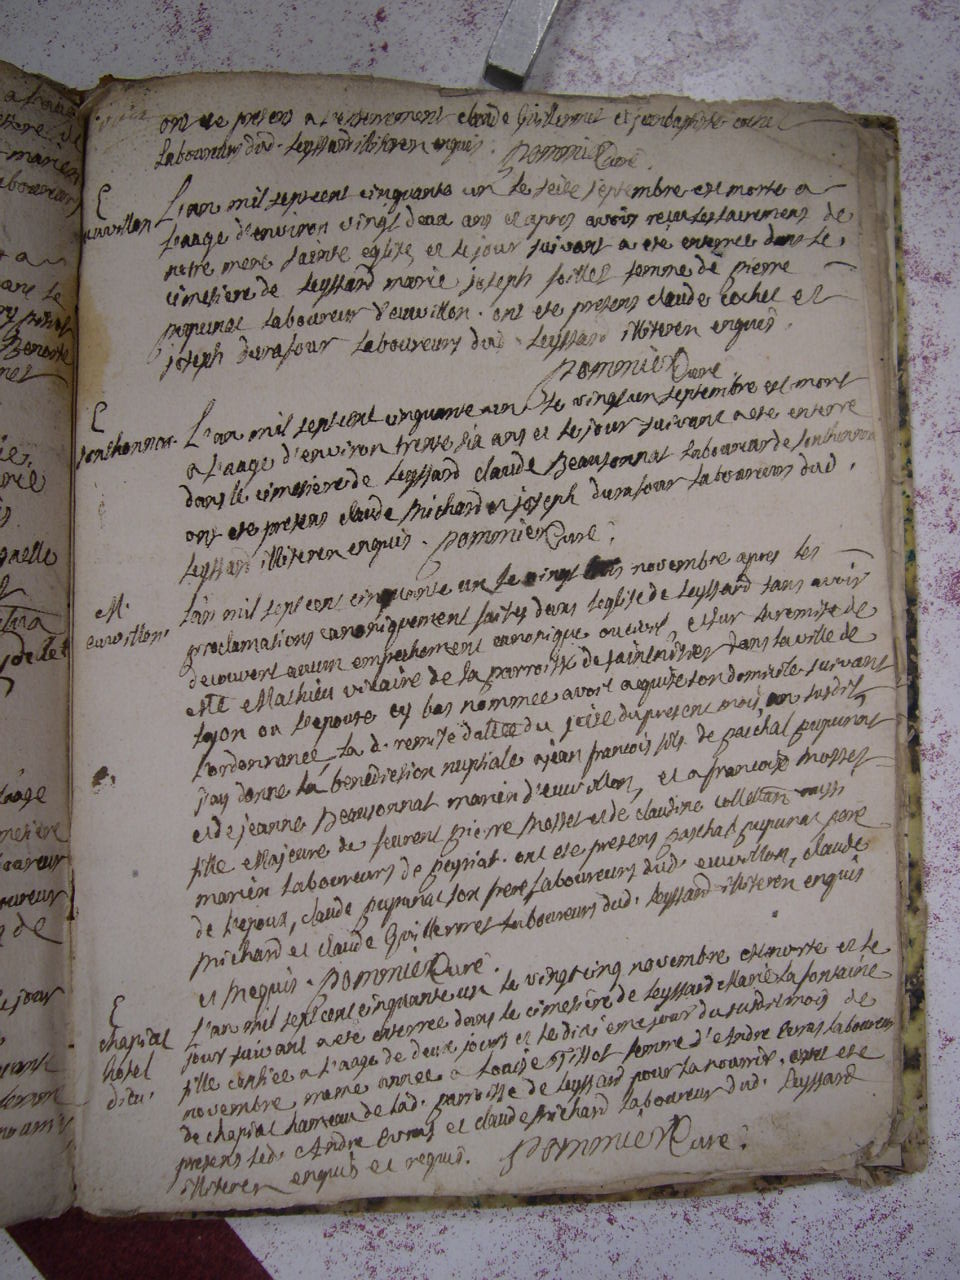 ont ete presens a l'enterrement claude Guillermet et jean baptiste cochet
laboureurs dud. Leyssard illiteren enquis. Pommier Curé.
E
euvillon
L'an mil septcent cinquante un le seise septembre est morte a
l'aage d'environ vingt deux ans et apres avoir recu les sacremens de
notre mere sainte eglise, et le jour suivant a eté enterree dans le
cimetiere de Leyssard marie joseph femme de pierre
pupunat laboureur d'euvillon. ont ete presens claude cochet et
joseph durafour laboureurs dud. Leyssard illiteren enquis.
Pommier Curé
E
sonthonnax.
L'an mil septcent cinquante un le vingt un septembre est mort
a l'aage d'environ trente six ans et le jour suivant a eté enterré
dans le cimetiere de Leyssard claude Beausonnat laboureur de sonthonnax
ont ete presens claude Michard et joseph durafour laboureurs dud.
Leyssard illiteren enquis. Pommier Curé.
M.
euvillon.
L'an mil septcent cinquante un le vingt novembre apres les
proclamations canoniquement faites dans l'eglise de Leyssard sans avoir
decouvert aucun empechement canonique ou civil, et sur la remise de
Mathieu vicaire de la parroisse de saint dans la ville de
lyon ou l'epouse cy bas nommee avoit acquite son domicile suivant
l'ordonnance, la d. remise du seise du present mois, an susdit
j'ay donné la benediction nuptiale a jean francois fils de paschal pupunat
et de jeanne Beausonnat marien d'euvillon, et a francoise mosset
fille Majeure de feurent pierre Mosset et de claudine aussi
marien laboureurs de peyriat. ont ete presens paschal pupunat pere
de l'epoux, claude pupunat son frere laboureurs dud. euvillon, claude
Michard et claude Guillermet laboureurs dud. Leyssard illiteren enquis
et requis. Pommier Curé.
E
chapiat
hôtel
dieu.
L'an mil septcent cinquante un le vingt cinq novembre est morte et le
jour suivant a eté enterree dans le cimetiere de Leyssard Marie la fontaine
fille confiée a l'aage de deux jours et le dixieme jour du susdit mois de
novembre meme année a Louise femme d'Andre Evras laboureur
de chapiat hameau de lad. parroisse de Leyssard pour la nourrir. ont ete
presens led. Andre Evras et claude Michard laboureur dud. Leyssard
illiteren enquis et requis. Pommier Curé.